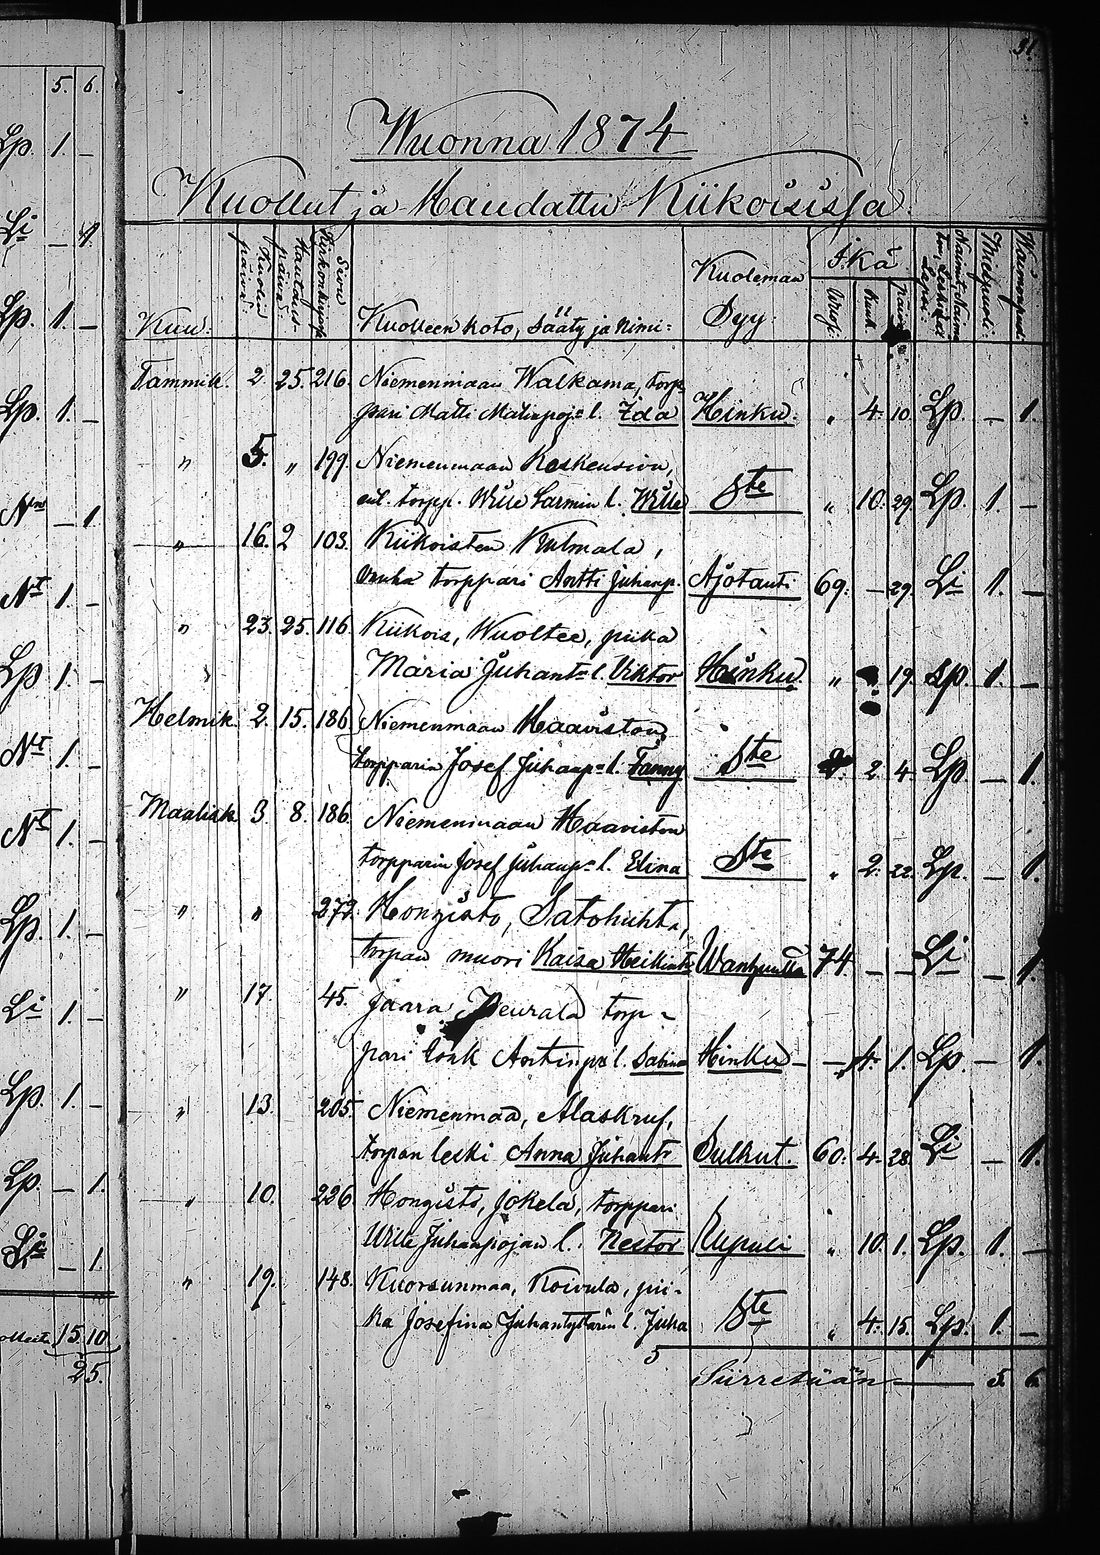 31.
5. 6.
Lp. 1. –
Li – 1.
Lp. 1. –
Lp. 1. –
– 1.
Nt 1. –
Lp 1. –
Nt 1. –
Nt 1. –
Lp. 1. –
Li 1. –
Lp. 1. –
Lp. – 1.
– 1.
15 10
25.
Wuonna 1874
Kuollut ja Haudattu Kiikoisissa
Kuu: Kuolin päivä. Hautaus päivä. Sivu Kirkonkirjasa Kuolleen koto, sääty ja nimi: Kuoleman Syy: Ikä Wuosi: Kuuk. Päiv. Miespuoli: Waimopuol:
Tammik. 2. 25. 216. Niemenmaan Walkama, torp
pari Matti Matinpoj: l. Ida Hinku: „ 4. 10. Lp. – 1.
„ 5. „ 199. Niemenmaan Koskensivu,
ent. torpp. Wille Sarmin l. Wille Ste „ 10. 29. Lp. 1. –
„ 16. 2 103. Kiikoisten Kulmala,
vanha torppari Antti Juhanp. Ajotauti 69. – 29. Li 1. –
„ 23. 25. 116. Kiikois, Wuoltee, piika
Maria Juhant: l. Viktor Hinku. „ 19. Lp. 1. –
Helmik. 2. 15. 186 Niemenmaan Haaviston
torpparin Josef Juhanp: l. Fanny Ste 2 4. Lp. – 1.
Maalisk. 3. 8. 186. Niemenmaan Haaviston
torpparin Josef Juhanp: l. Elina Ste „ 2. 22. Lp. – 1.
„ „ 272. Hongisto, Satohuhta,
torpan muori Kaisa Heikint: Wanhuutta 74 – – Li – 1.
„ 17. 45. Jaara, Peurala torp-
pari l. Sabina Hinku – – 4. 1. Lp. – 1.
„ 13. 205. Niemenmaa, Alaskruf,
torpan leski Anna Juhant: Sulkut. 60. 4. 28. Li – 1.
„ 10. 226. Hongisto, Jokela, torppari
Wille Juhanpojan l. Nestor Rupuli „ 10. 1. Lp. 1. –
„ 19. 148. Kuorsunmaa, Koivula, pii-
ka Josefina Juhantyttärin l. Juha Ste „ 4. 15. Lp. 1. –
Siirretään – 5. 6.